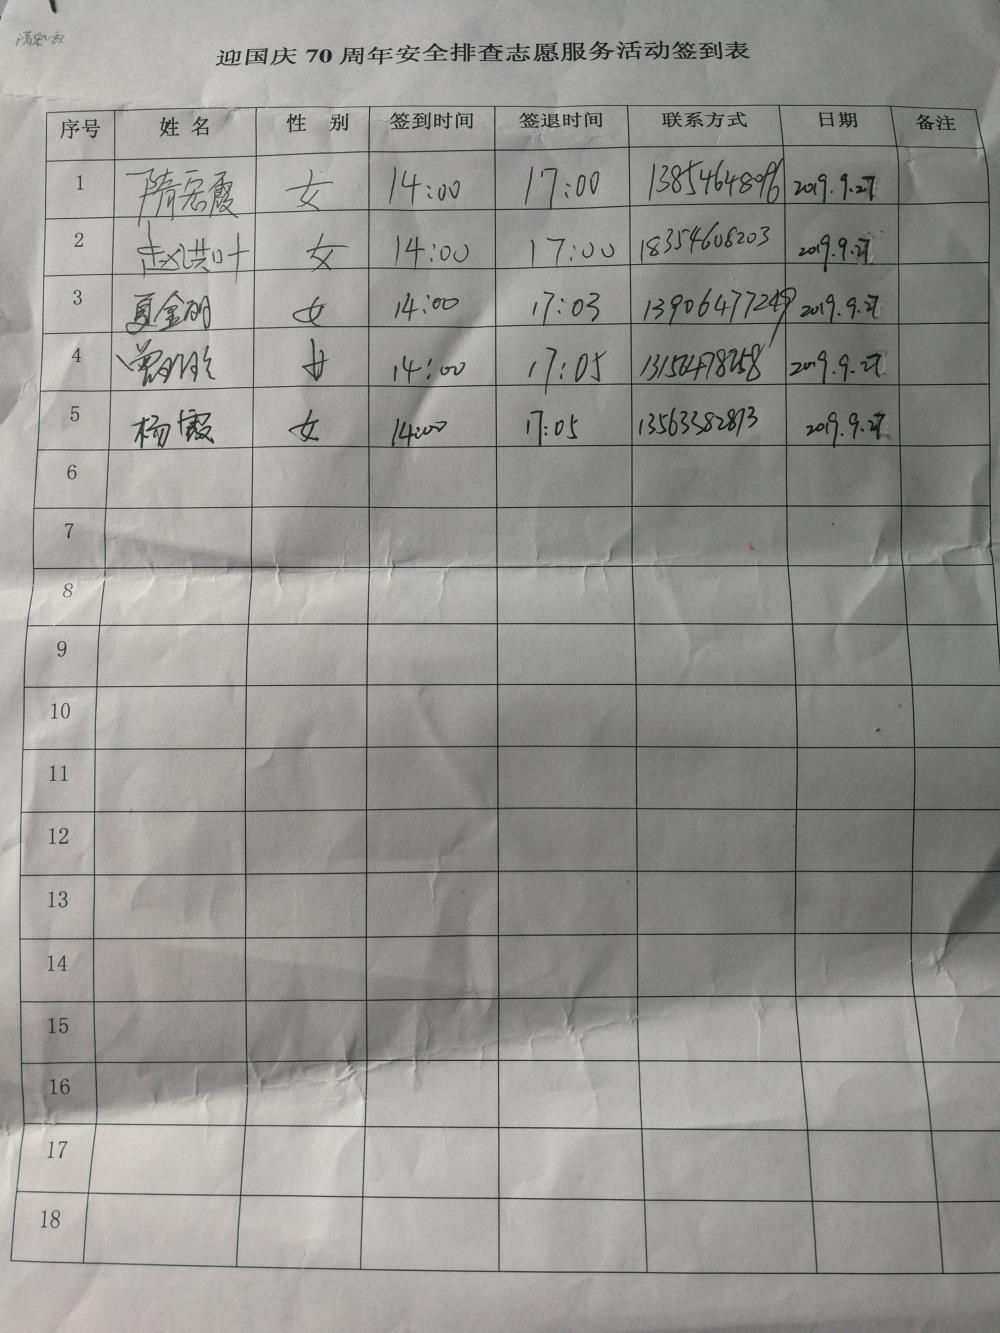 迎国庆 70 周年安全排查志愿服务活动签到表
序号 姓 名 性 别 签到时间 签退时间 联系方式 日期 备注
1 隋容霞 女 14:00 17:00 13854648096 2019.9.27
2 赵洪叶 女 14:00 17:00 18354608203 2019.9.27
3 夏金明 女 14:00 17:03 13906477249 2019.9.27
4 女 14:00 17:05 13156478758 2019.9.27
5 杨霞 女 14:00 17:05 13563382873 2019.9.27
6
7
8
9
10
11
12
13
14
15
16
17
18